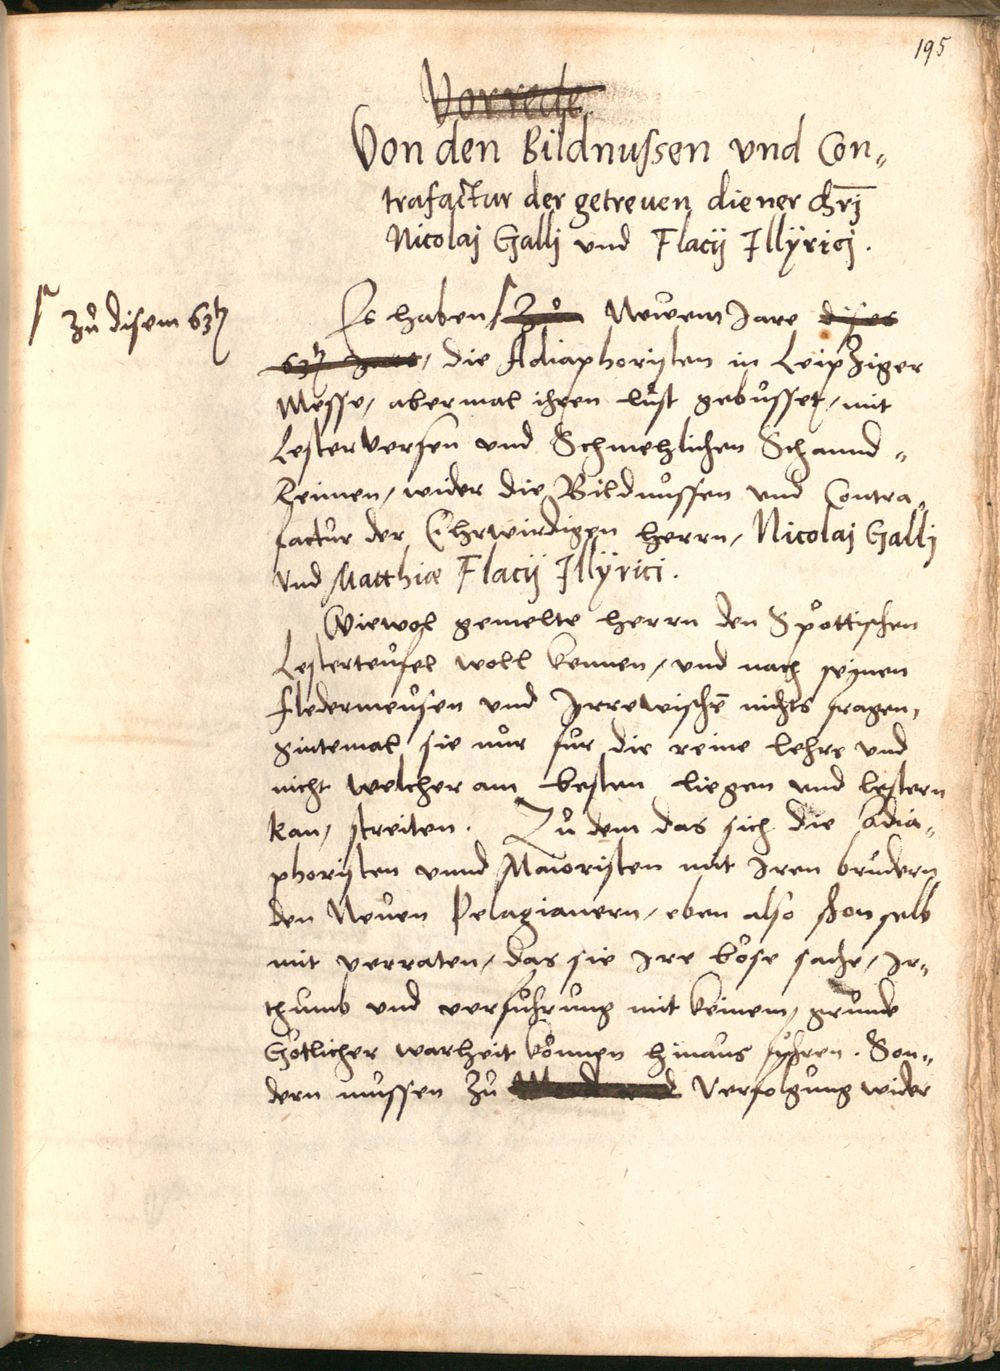 195
Vorrede.
Von den Bildnussen vnd Con„
trafactur der getreuen diener chrj
Nicolaj Gallj vnd Flacij Illÿricj.
Zů disem 63tẽ
Es haben Zů Newem Jare dises
63tẽ Jares, die Adiaphoristen in Leipziger
Messe, abermal ihren lůst gebůsset, mit
Lesterversen vnd Schmehlichen Schannd„
Reimen, wider die Bildnůssen vnd Contra„
factůr der Ehrwirdigen herrn, Nicolaj Gallj
Vnd Matthiæ Flacij Illÿrici.
Wiewol gemelte herrn den Spöttischen
Lesterteůfel woll kennen, vnd nach seynen
fledermeůsen vnd Irrewischẽ nichts fragen,
Sintemal sie nůr fůr die reine lehre vnd
nicht welcher am besten liegen vnd lestern
kan, streiten. Zů dem das sich die Adia„
phoristen vnnd Maioristen mit Iren brůdern
den Neůen Pelagianern, eben also schon selb
mit verraten, das sie Ire böse sache, Ir„
thumb vnd verfůhrung mit keinem grůnde
Götlicher warheit können hinaus fůhren. Son„
dern můssen zů Verfolgůng wider